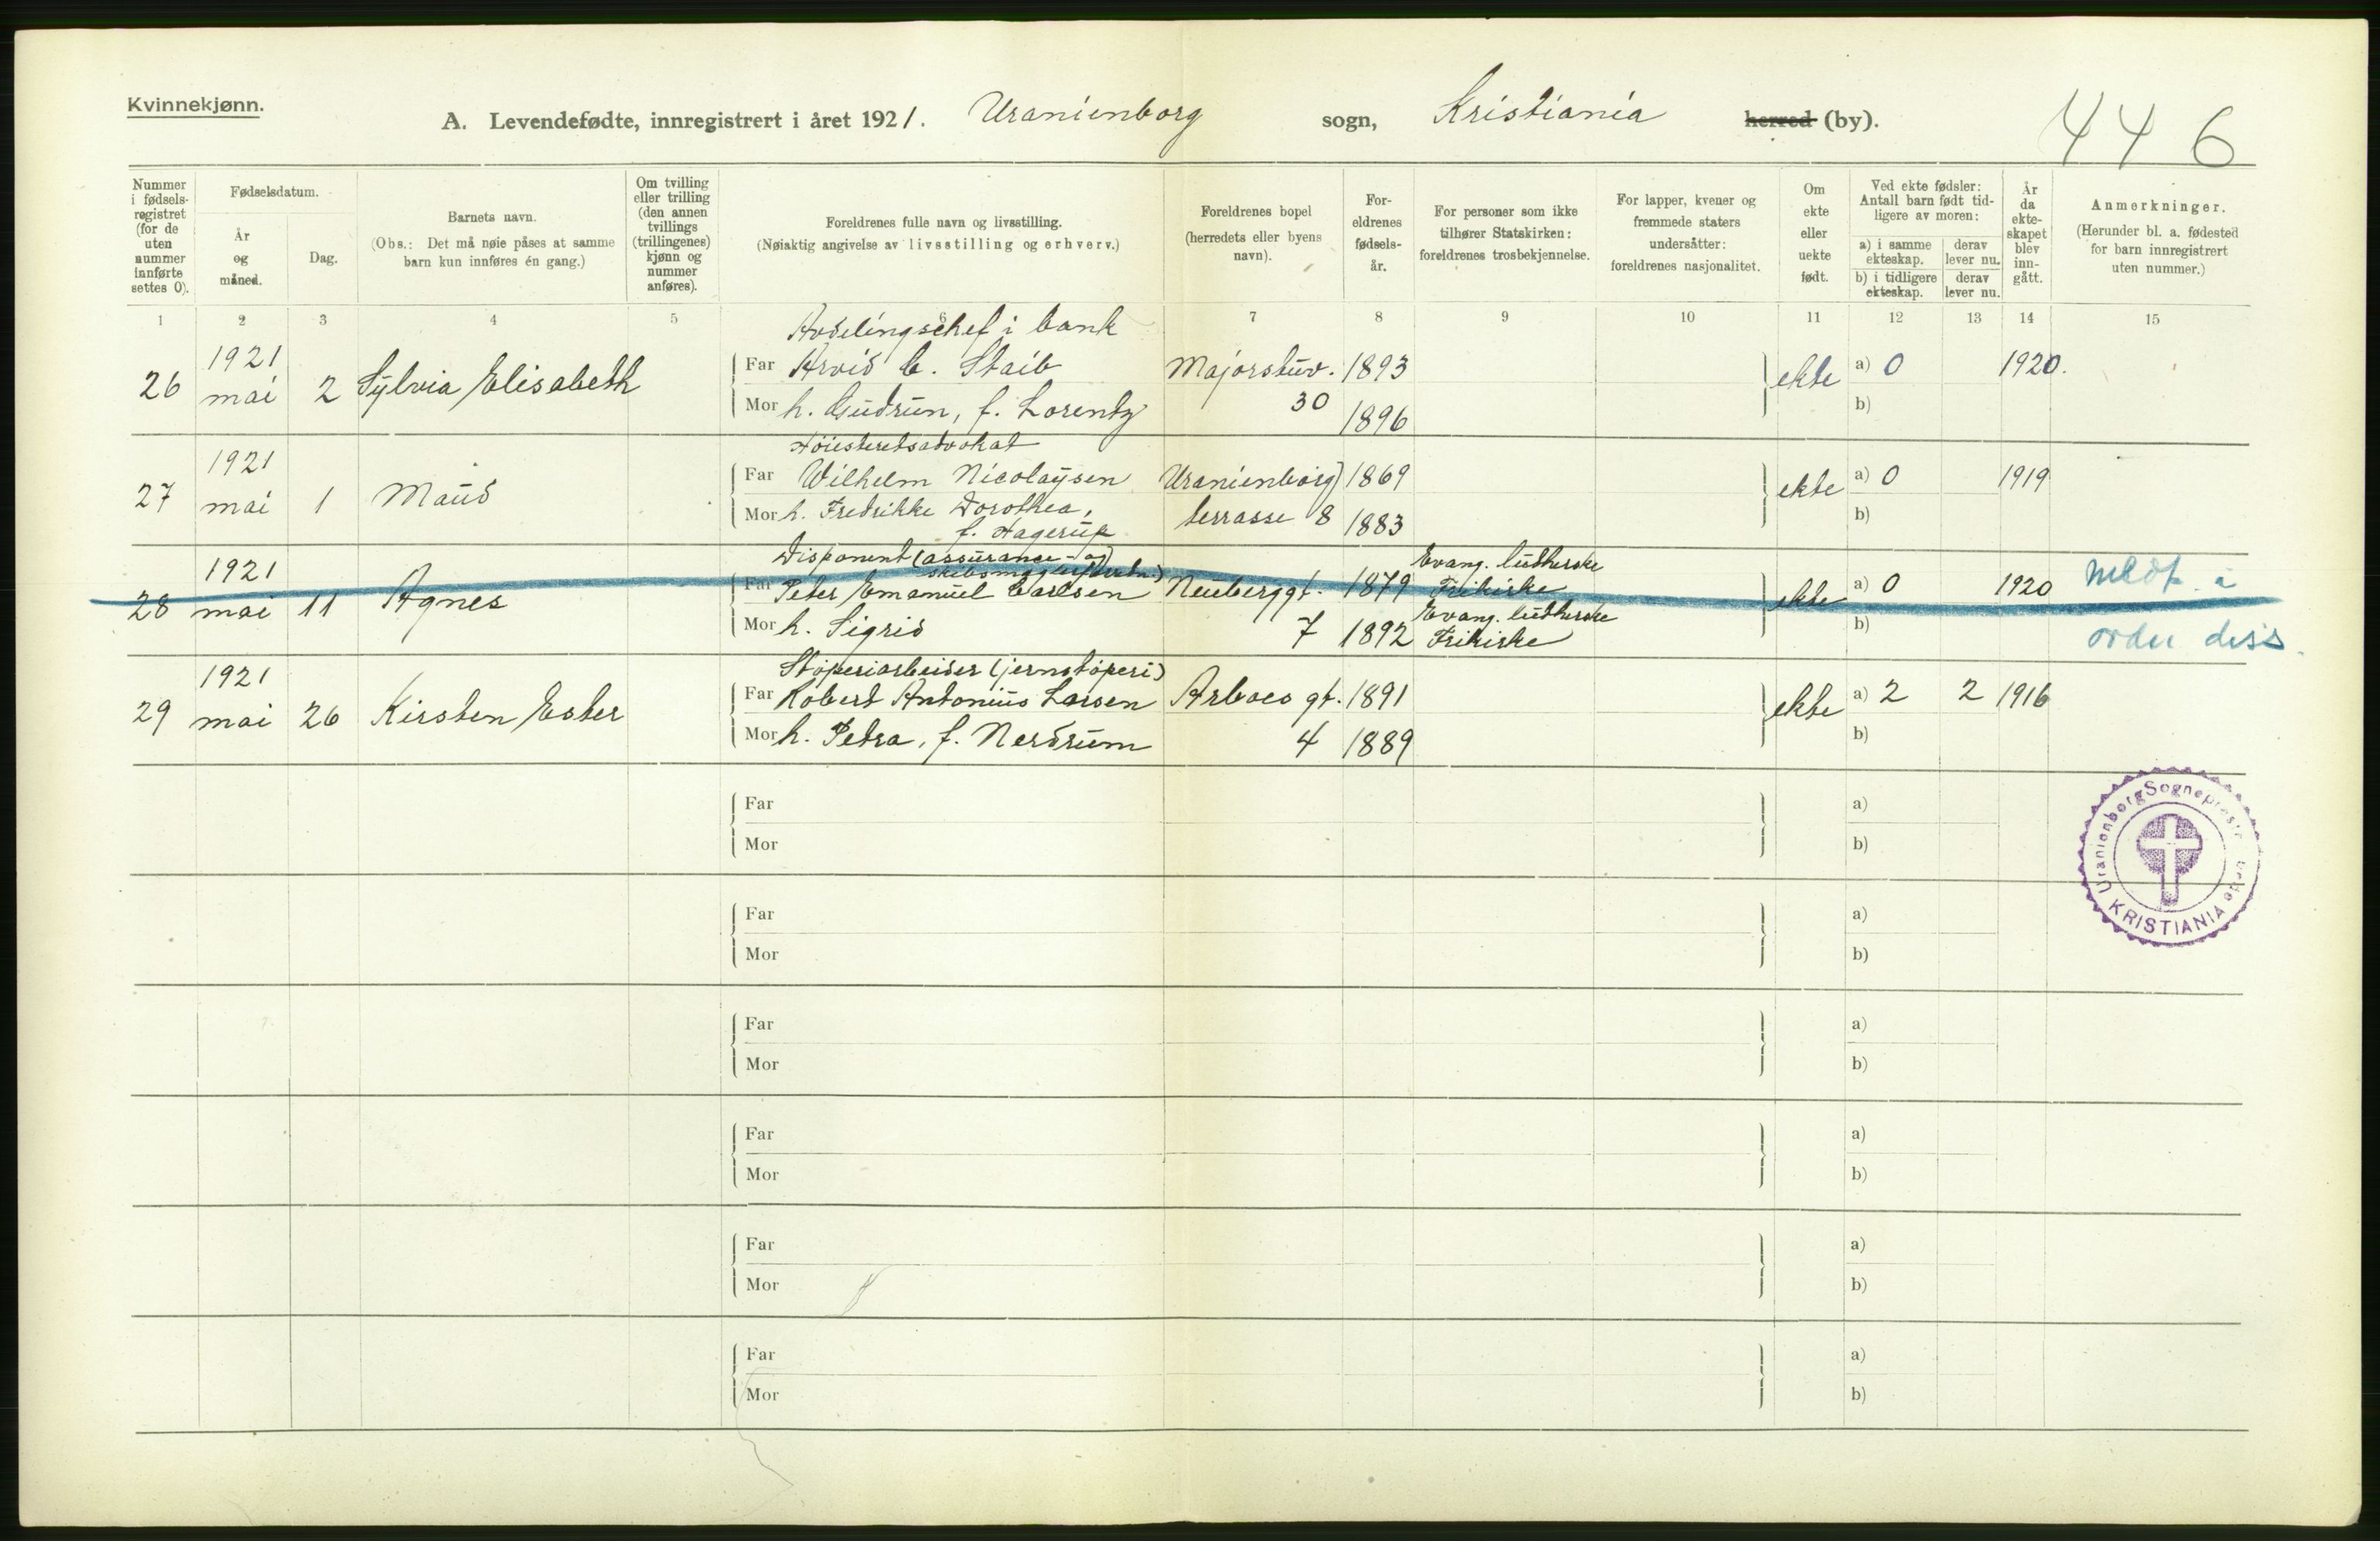 Kvinnekjønn.
A. Levendefødte, innregistrert i året 1921. Uranienborg sogn, Kristiania herred (by).
446
Nummer i fødsels-registret (for de uten nummer innførte settes 0).
Fødselsdatum.
År og måned.
Dag.
Barnets navn.
(Obs.: Det må nøie påses at samme barn kun innføres én gang.)
Om tvilling eller trilling (den annen tvillings (trillingenes) kjønn og nummer anføres).
Foreldrenes fulle navn og livsstilling.
(Nøiaktig angivelse av livsstilling og erhverv.)
Foreldrenes bopel (herredets eller byens navn).
For-eldrenes fødsels-år.
For personer som ikke tilhører Statskirken: foreldrenes trosbekjennelse.
For lapper, kvener og fremmede staters undersåtter: foreldrenes nasjonalitet.
Om ekte eller uekte født.
Ved ekte fødsler: Antall barn født tid-ligere av moren:
a) i samme ekteskap.
derav lever nu.
b) i tidligere ekteskap.
derav lever nu.
År da ekte-skapet blev inn-gått.
Anmerkninger.
(Herunder bl. a. fødested for barn innregistrert uten nummer.)
1 2 3 4 5 6 7 8 9 10 11 12 13 14 15
Avdelingschef i bank
26 1921 mai 2 Sylvia Elisabeth Far Arvid C. Staib Majorstuv. 1893 ekte a) 0 1920.
Mor h. Gudrun, f. Lorentz 30 1896 b)
Høiesteretsadvokat
27 1921 mai 1 Maud Far Wilhelm Nicolaysen Uranienborg 1869 ekte a) 0 1919
Mor h. Fredrikke Dorothea, f. Hagerup terrasse 8 1883 b)
Disponent (assurance- og
28 1921 mai 11 Agnes Far Peter Emanuel Carlsen Neuberggt. 1879 Evang. lutherske Frikirke ekte a) 0 1920
Mor h. Sigrid 7 1892 Evang. lutherske Frikirke b)
Støperiarbeider (jernstøperi)
29 1921 mai 26 Kirsten Ester Far Robert Antonius Larsen Arboes gt. 1891 ekte a) 2 2 1916
Mor h. Petra, f. Nerdrum 4 1889 b)
Far a)
Mor b)
Far a)
Mor b)
Far a)
Mor b)
Far a)
Mor b)
Far a)
Mor b)
Far a)
Mor b)
Uranienborg
KRISTIANIA